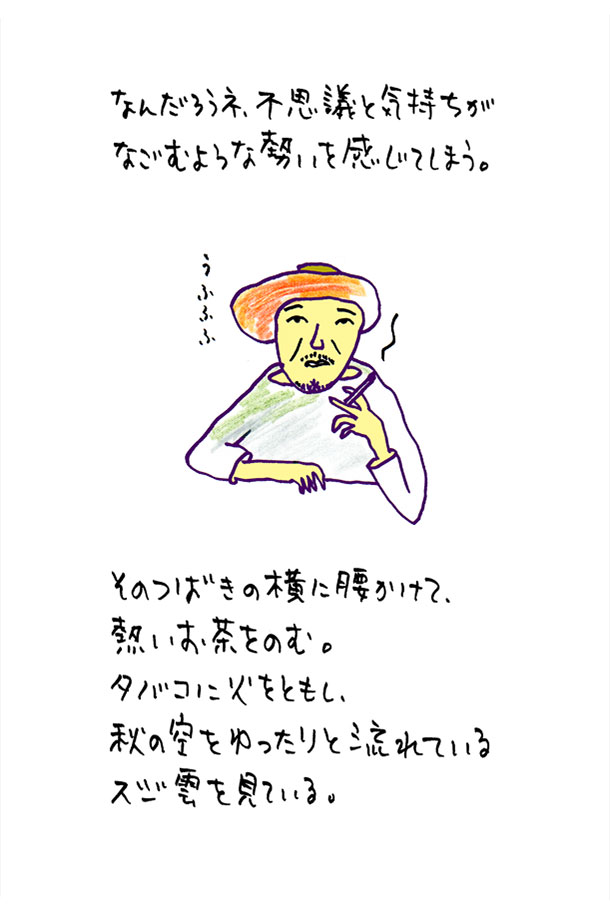 なんだろうネ、不思議と気持ちが
なごむような勢いを感じてしまう。
うふふふ
そのつばきの横に腰かけて、
熱いお茶をのむ。
タバコに火をともし、
秋の空をゆったりと流れている
スジ雲を見ている。